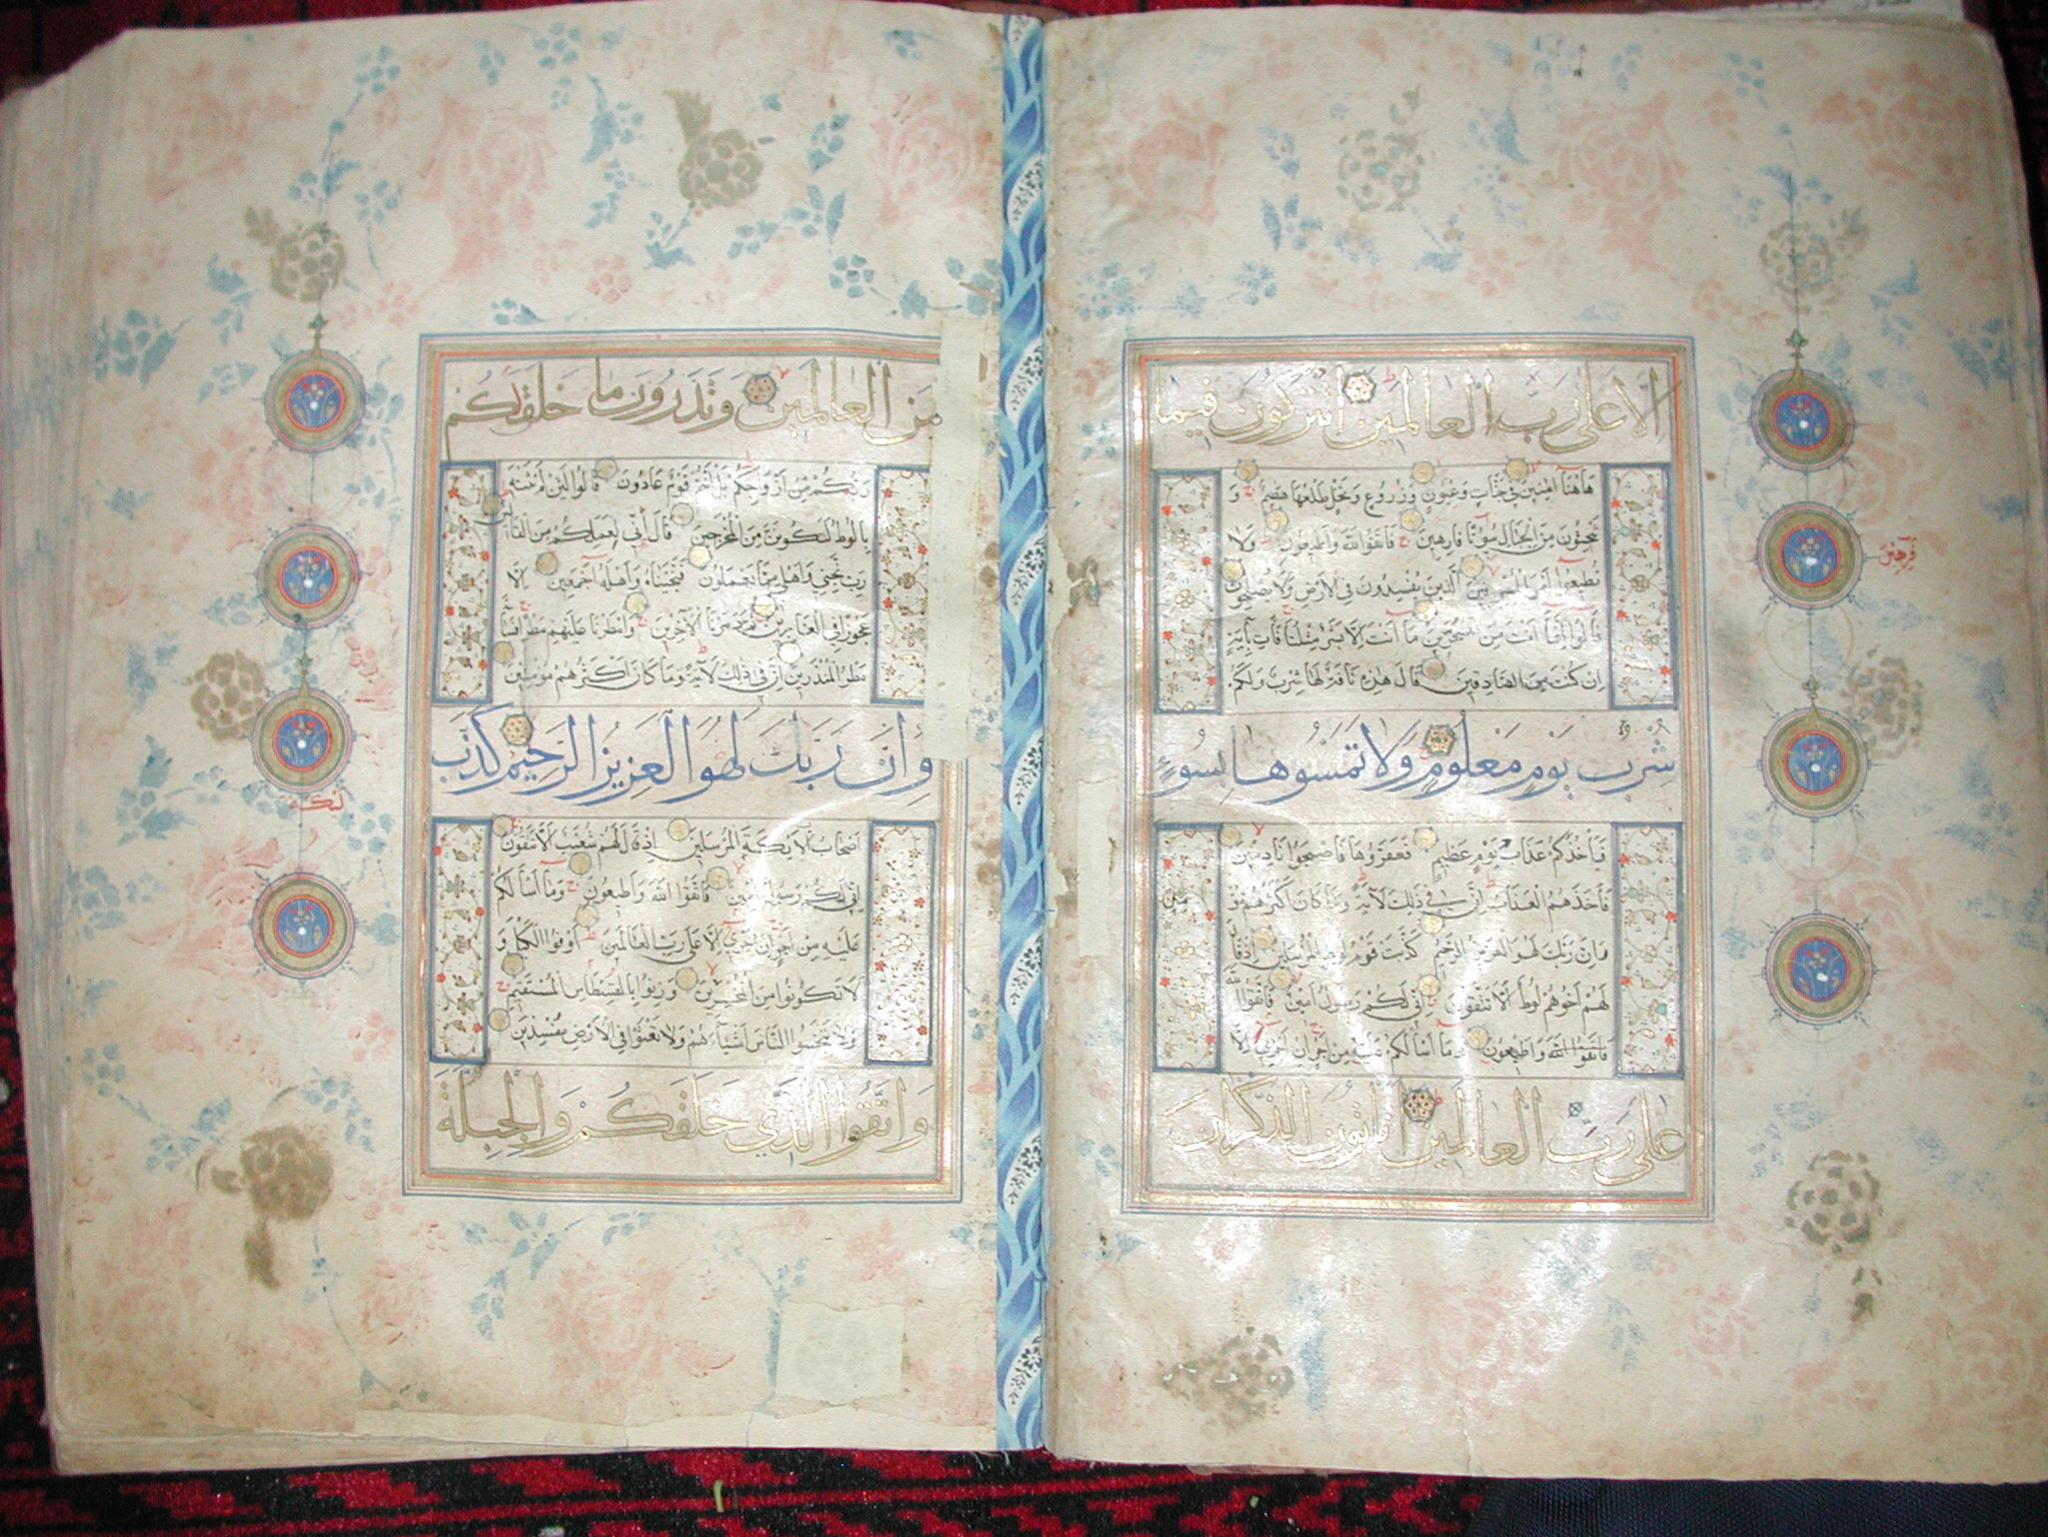 الا على رب العالمين اتتركون فيما
هاهنا امنين في جنات وعيون وزروع ونخل طلعها هضيم و
تنحتون من الجبال بيوتا فارهين فاتقوا الله واطيعون ولا
تطيعوا امر المسرفين الذين يفسدون في الارض ولا يصلحون
قالوا انما انت من المسحرين ما انت الا بشر مثلنا فات باية
ان كنت من الصادقين قال هذه ناقة لها شرب ولكم
شِرْبُ يَوْمٍ مَعْلُومٍ وَلَا تَمَسُّوهَا بِسُوءٍ
فيأخذكم عذاب يوم عظيم فعقروها فاصبحوا نادمين
فاخذهم العذاب ان في ذلك لاية وما كان اكثرهم مؤ
منين
وان ربك لهو العزيز الرحيم كذبت قوم لوط المرسلين اذ قال
لهم اخوهم لوط الا تتقون اني لكم رسول امين فاتقوا الله
فاتقوا الله واطيعون وما اسألكم عليه من اجر ان اجري الا
على رب العالمين اتاتون الذكران
فرهين
من العالمين وتذرون ما خلق لكم
ربكم من ازواجكم بل انتم قوم عادون قالوا لئن لم تنته
يا لوط لتكونن من المخرجين قال اني لعملكم من القالين
رب نجني واهلي مما يعملون فنجيناه واهله اجمعين الا
عجوزا في الغابرين ثم دمرنا الآخرين وامطرنا عليهم مطرا فساء
مطر المنذرين ان في ذلك لآية وما كان اكثرهم مؤمنين
وَاِنَّ رَبَّكَ لَهُوَ الْعَزِيزُ الرَّحِيمُ كَذَّبَ
اصحاب الايكة المرسلين اذ قال لهم شعيب الا تتقون
اني لكم رسول امين فاتقوا الله واطيعون وما اسألكم
عليه من اجر ان اجري الا على رب العالمين اوفوا الكيل و
لا تكونوا من المخسرين وزنوا بالقسطاس المستقيم
ولا تبخسوا الناس اشياءهم ولا تعثوا في الارض مفسدين
وَاتَّقُوا الَّذِي خَلَقَكُمْ وَالْجِبِلَّةَ
ليكه